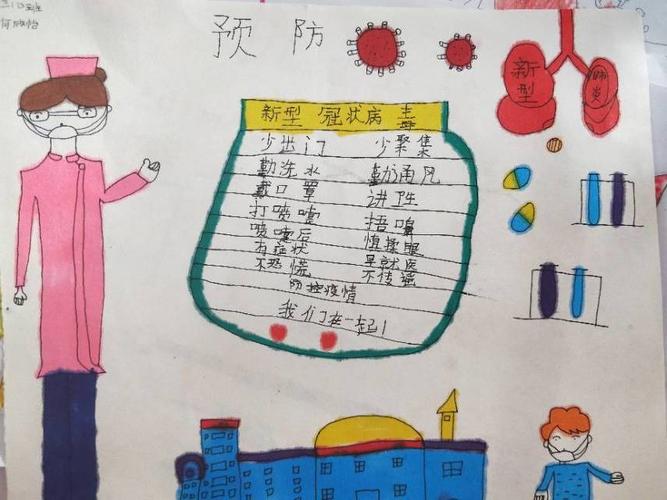 三(2)班
何欣怡
预防
新型 肺炎
新型 冠状病毒
少出门 少聚集
勤洗水 勤通风
戴口罩 讲卫生
打喷嚏 捂嘴鼻
喷嚏后 慎揉眼
有症状 早就医
不恐慌 不传谣
防控疫情
我们在一起!